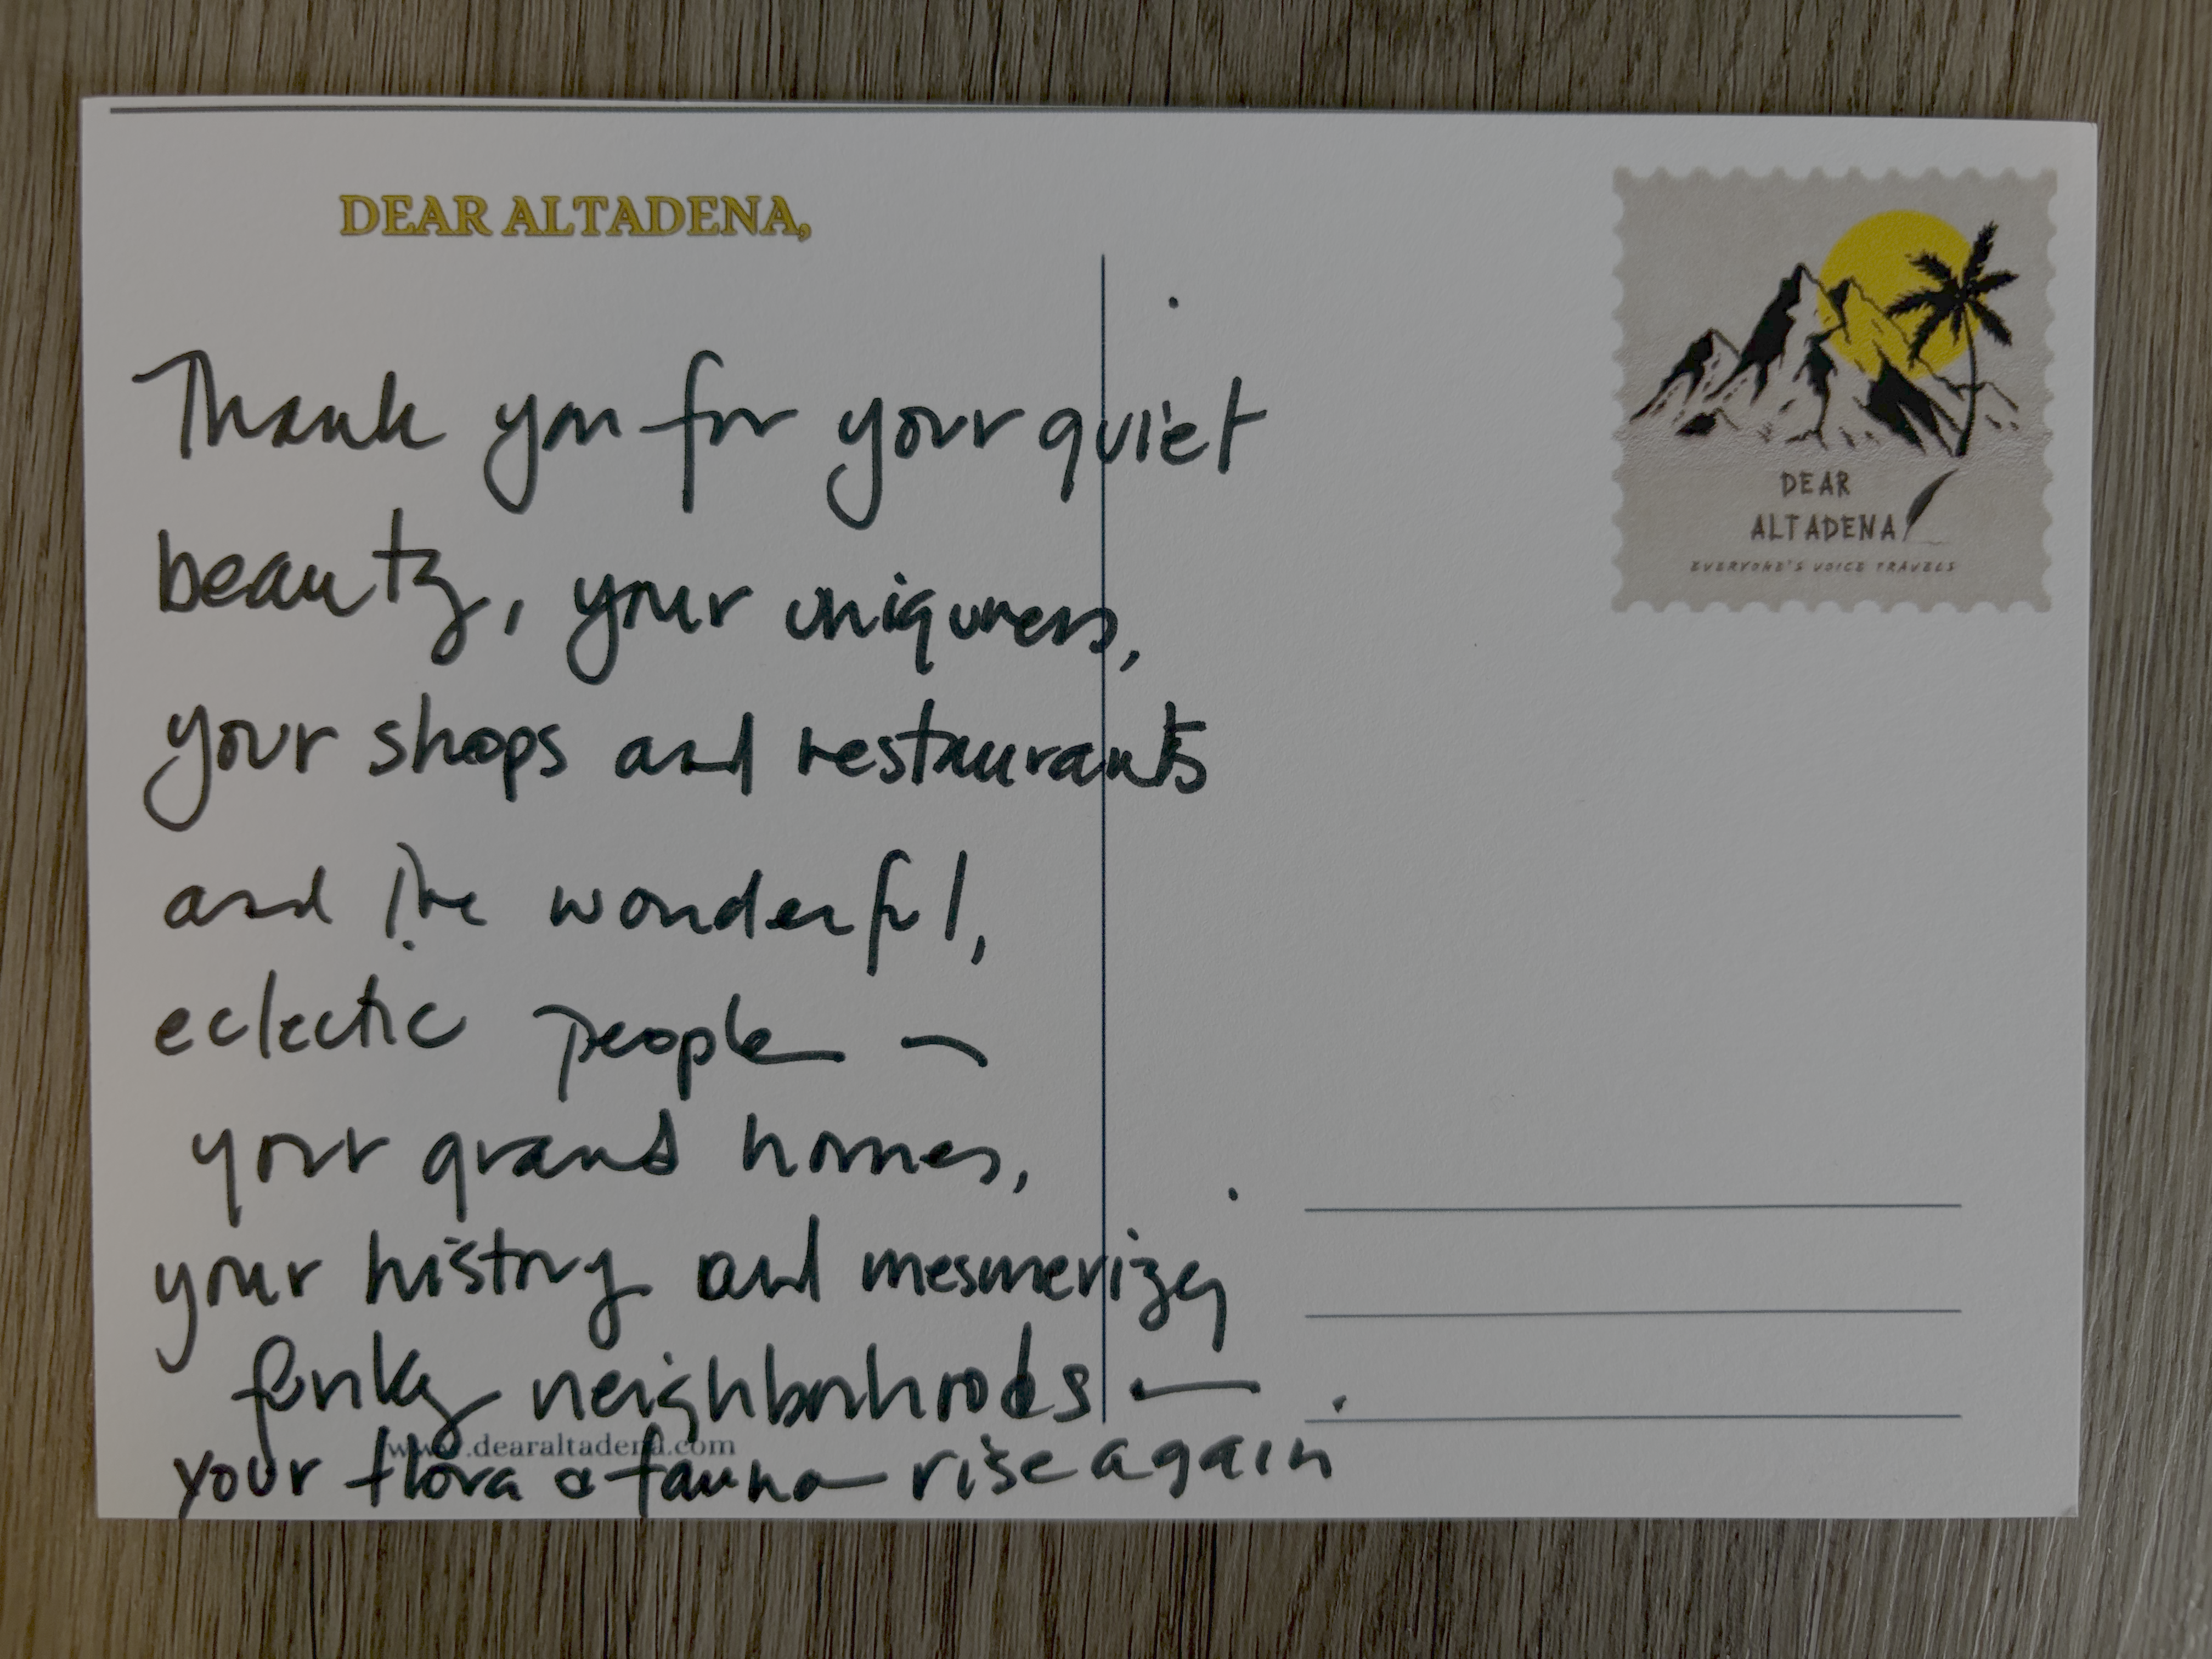 DEAR ALTADENA,
Thank you for your quiet
beauty, your uniqueness,
your shops and restaurants
and the wonderful,
eclectic people —
your grand homes,
your history and mesmerizing
funky neighborhoods —
www.dearaltadena.com
your flora & fauna rise again
DEAR
ALTADENA
EVERYONE'S VOICE TRAVELS